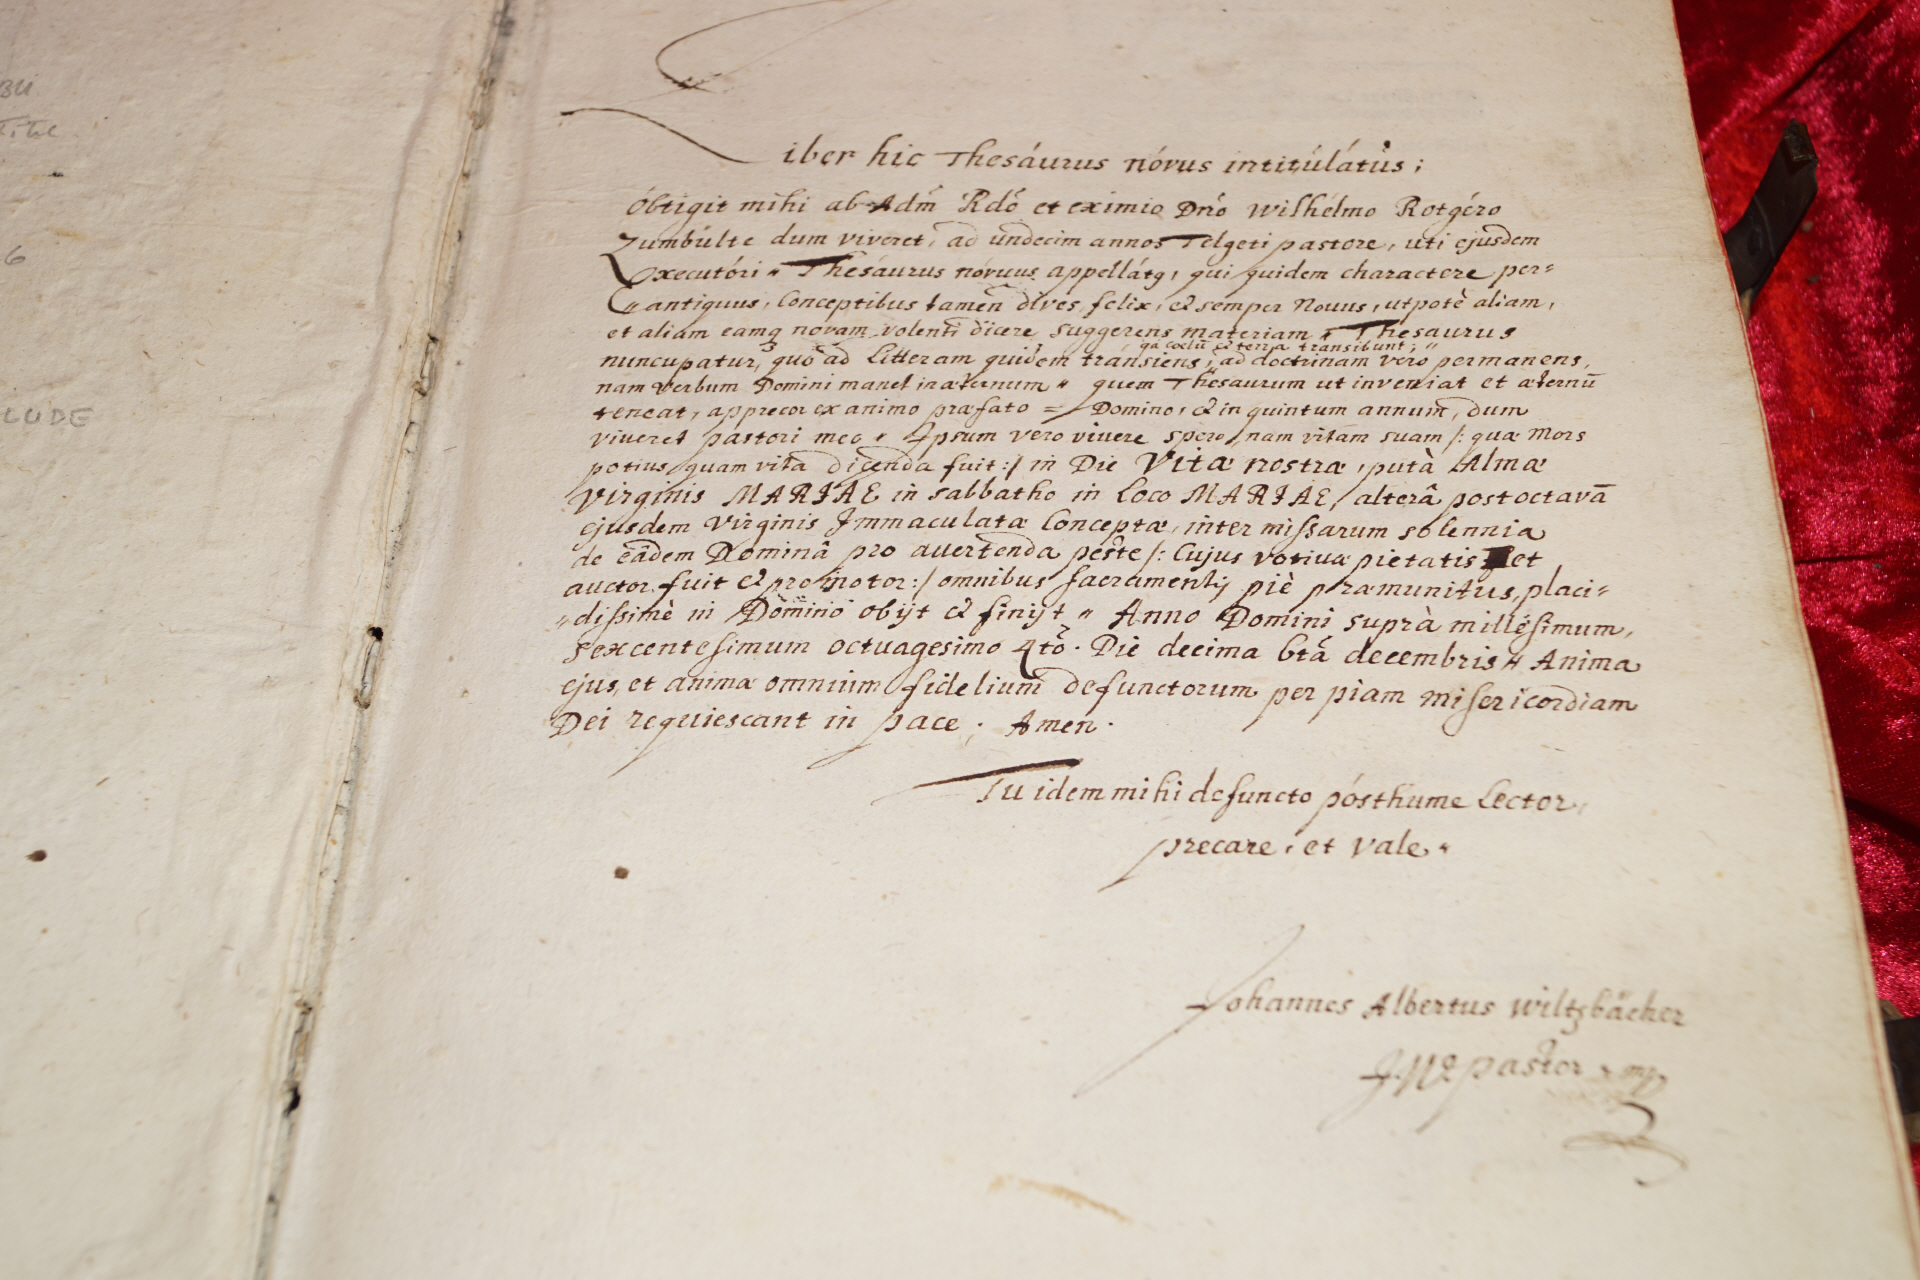 BU
Titel
6
LUDE
Liber hic Thesáurus nóvus intitúlátus;
óbtigit mihi ab Adm̄ Rdó et eximio Dnó Wilhélmo Rotgéro
Zumbúlte dum viveret, ad undecim annos Telgeti pastore, uti ejusdem
Executóri " Thesáurus nóvuus appellátq, qui quidem charactere per=
antiquus, Conceptibus tamen dives, felix, & semper Nouus, utpotè aliam,
et aliam eamq novam volenti dicere suggerens materiam " Thesaurus
qa coelū & terra transibunt; "
nuncupatur, quo ad Litteram quidem transiens, ad doctrinam vero permanens,
nam Verbum Domini manet in æternum " quem Thesaurum ut inveniat et æternū
teneat, apprecor ex animo præfato = Domino, & in quintum annum, dum
viveret pastori meo " Ipsum vero vivere spero, nam vitam suam /: quæ Mors
potius, quam vita dicenda fuit :/ in Die Vitæ nostræ, putà Almæ
Virginis MARIAE in sabbatho in Loco MARIAE, alterâ post octavā
ejusdem Virginis Immaculatæ Conceptæ, inter missarum solennia
de eâdem Dominâ pro auertenda peste /: Cujus votiuæ pietatis et
auctor fuit & promotor :/ omnibus sacramentis piè præmunitus, placi=
=dissimè in Domino obijt & finijt " Anno Domini suprà millésimum,
sexcentesimum octuagesimo 4tô. Die decima 6tâ decembris " Anima
ejus, et animæ omnium fidelium defunctorum per piam misericordiam
Dei requiescant in pace. Amen.
Tu idem mihi defuncto pósthume Lector,
precare, et Vale "
Johannes Albertus Wiltzbächer
pastor mp